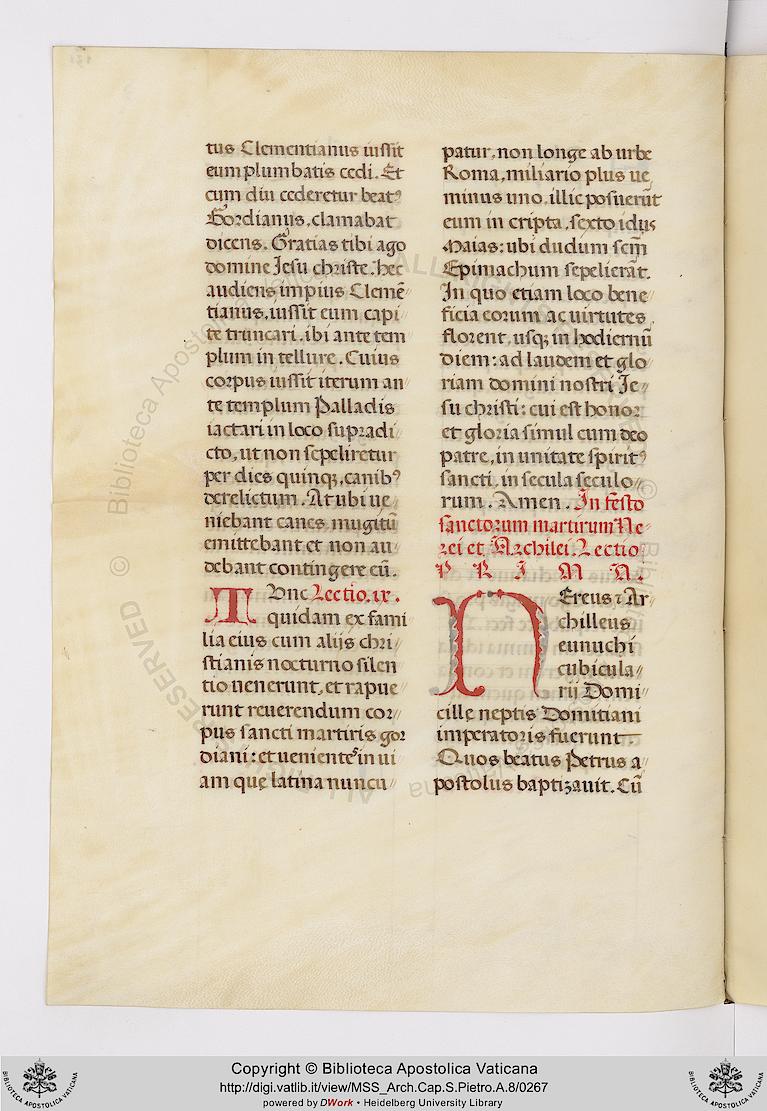 tus Clementianus iussit
eum plumbatis cedi. Et
cum diu cederetur beatꝰ
Gordianus, clamabat
dicens. Gratias tibi ago
domine Jesu christe. hec
audiens impius Clemē
tianus, iussit eum capi
te truncari. ibi ante tem
plum in tellure. Cuius
corpus iussit iterum an
te templum Palladis
iactari in loco supradi
cto, ut non sepeliretur
per dies quinqꝫ, canibꝰ
derelictum. At ubi ue
niebant canes mugitū
emittebant et non au
debant contingere eū.
TUnc Lectio. ix.
quidam ex fami
lia eius cum alijs chri
stianis nocturno silen
tio uenerunt, et rapue
runt reuerendum cor
pus sancti martiris gor
diani: et uenientes in ui
am que latina nuncu
patur, non longe ab urbe
Roma, miliario plus ue
minus uno. illic posuerūt
eum in cripta. sexto idus
Maias: ubi dudum scm̄
Epimachum sepelierāt.
In quo etiam loco bene
ficia eorum ac uirtutes
florent, usqꝫ in hodiernū
diem: ad laudem et glo
riam domini nostri Je
su christi: cui est honor
et gloria simul cum deo
patre, in unitate spiritꝰ
sancti, in secula seculo
rum. Amen. In festo
sanctorum martirum Ne
rei et Archilei. Lectio
P R I M A.
NEreus ⁊ Ar
chilleus
eunuchi
cubicula
rij Domi
cille neptis Domitiani
imperatoris fuerunt
Quos beatus Petrus a
postolus baptizauit. Cū
© Biblioteca Apostolica Vaticana
ALL RIGHTS RESERVED
Copyright © Biblioteca Apostolica Vaticana
http://digi.vatlib.it/view/MSS_Arch.Cap.S.Pietro.A.8/0267
powered by DWork • Heidelberg University Library
BIBLIOTECA APOSTOLICA VATICANA
BIBLIOTECA APOSTOLICA VATICANA